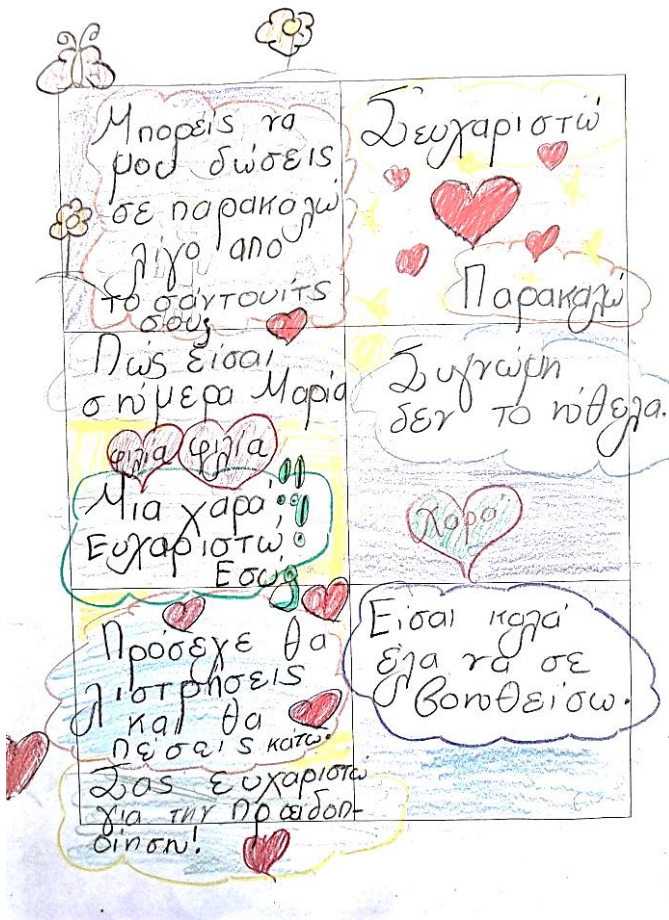 Μπορείς να
μου δώσεις
σε παρακαλώ
λίγο απο
το σάντουιτς
σου;
Σευχαριστώ
Παρακαλώ
Πώς είσαι
σήμερα Μαρία
φιλία φιλία
Μια χαρά,
Ευχαριστώ,
Εσύ;
Συγνώμη
δεν το ήθελα.
Χαρά
Πρόσεχε θα
λιστρήσεις
και θα
πέσεις κάτω.
Σας ευχαριστώ
για την προειδοπ-
οίηση!
Είσαι καλά
έλα να σε
βοηθείσω.